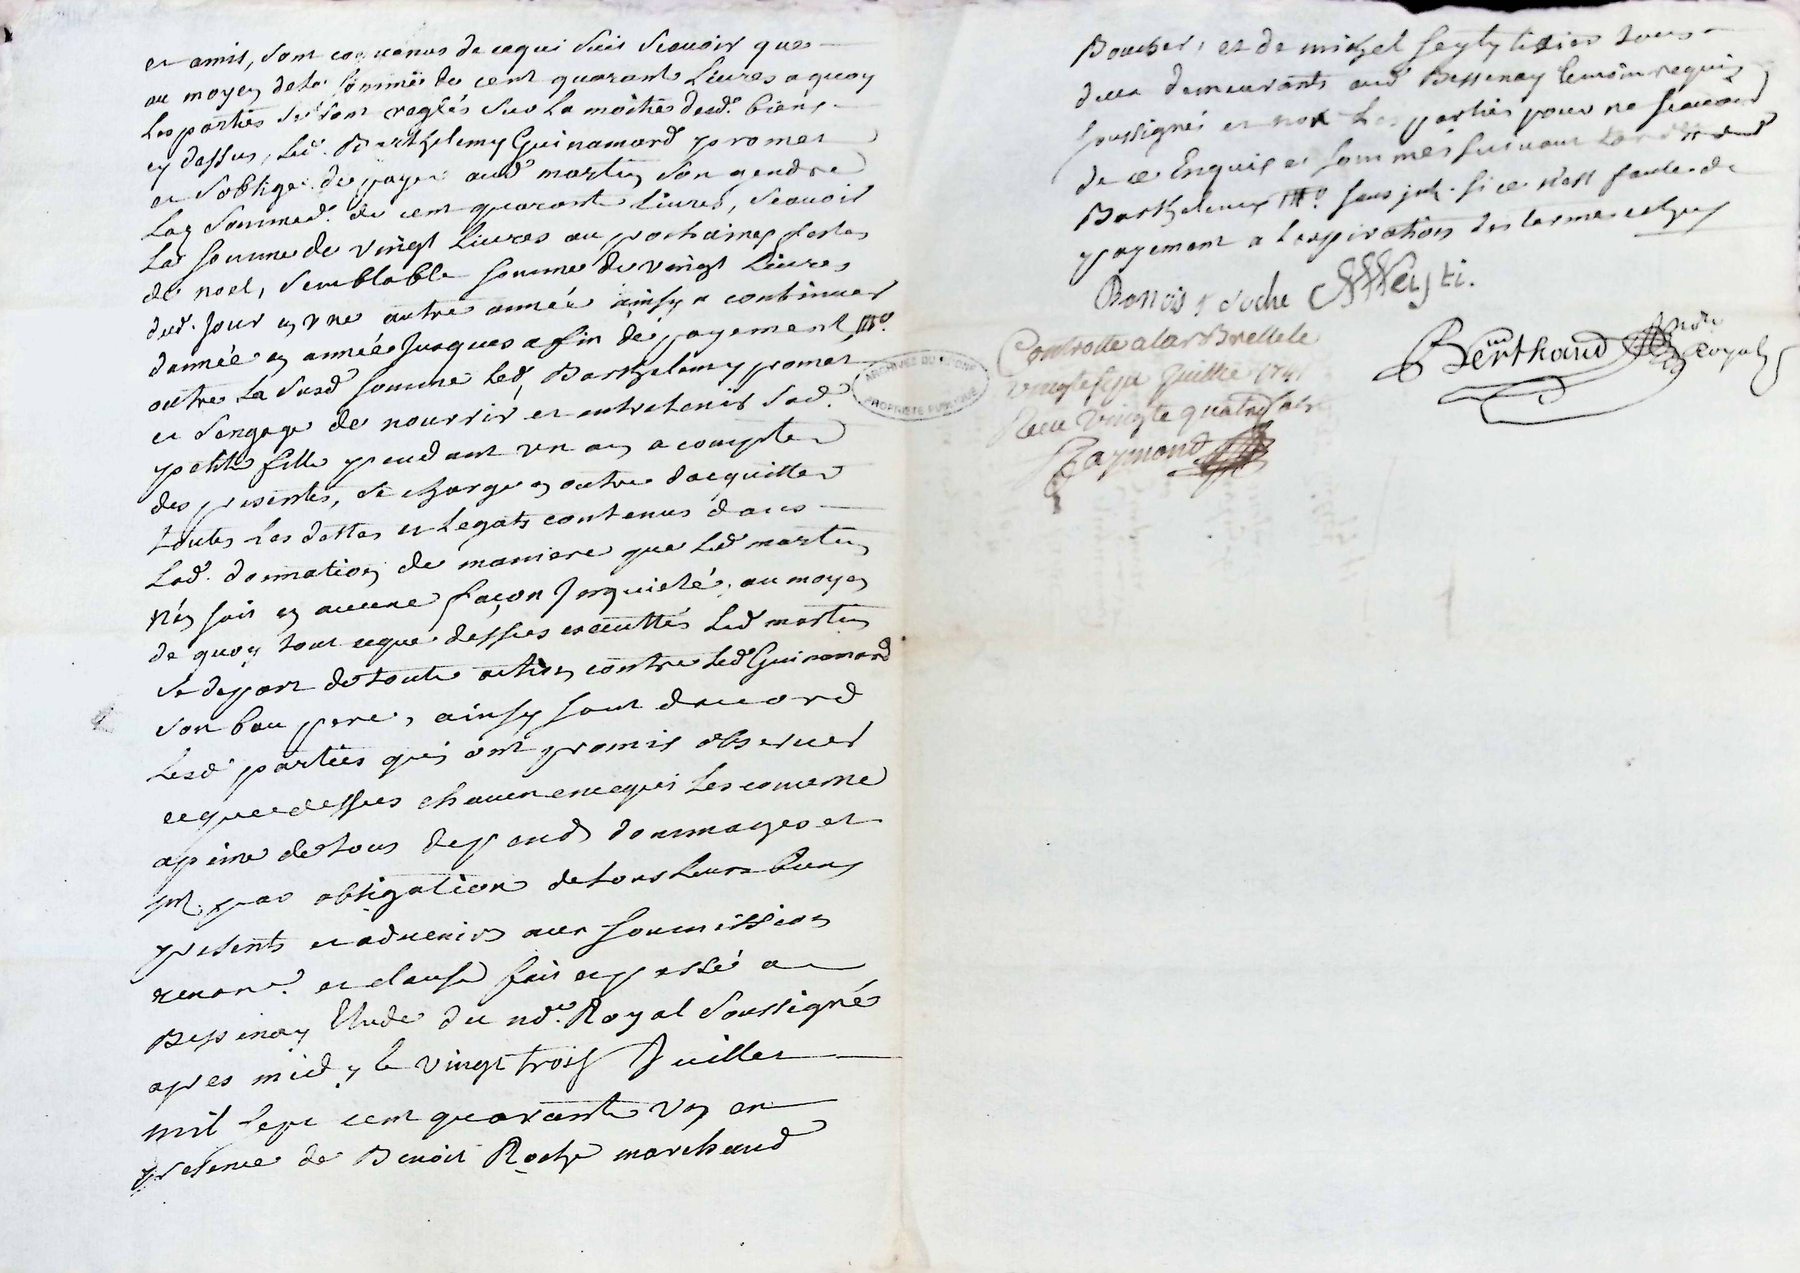 et amis, sont convenus de ce qui suit scavoir que
au moyen de la somme de cent quarante livres a quoy
les parties se sont reglés sur la moitié desd. biens
cy dessus, led. Barthelemy Guinamard promet
et s'oblige de payer aud. martin son gendre
lad. somme de cent quarante livres, scavoir
la somme de vingt livres au prochaines festes
de noel, semblable somme de vingt livres
dud. jour en une autre année ainsy a continuer
d'année en année jusques a fin de payement
outre la susd. somme led. Barthelemy promet
et s'engage de nourrir et entretenir sad.
petite fille pendant un an a compter
des presentes, se charge en outre d'acquitter
toutes les dettes et legats contenus dans
lad. donnation de maniere que led. martin
n'en soit en aucune façon inquieté, au moyen
de quoy tout ce que dessus executtés led. martin
se depart de toute action contre led. Guinamard
son bau pere, ainsy sont d'accord
lesd. parties qui ont promis observer
ce que dessus chacun en ce qui les concerne
a peine de tous depends dommages et
int. par obligation de tous leurs biens
presents et advenir avec soumission
renon. et clause fait et passé a
Bessenay Etude du no.re Royal soussigné
apres midy le vingt trois Juillet
mil sept cent quarante un en
presence de Benoit Roche marchand
Boucher, et de michel seyty tous
deux demeurants aud. Bessenay temoin requis
soussignés et non les parties pour ne scavoir
de ce Enquis et sommés suivant
Barthelemy sans si ce n'est faute de
payement a l'expiration des termes
Benois Roche Seyti.
Bertrhand no.re Royal
Controllé a la Brelle le
vingt sept Juillet 1741
Recu vingte quatre sols
Raymond
ARCHIVES DU RHONE
PROPRIÉTÉ PUBLIQUE